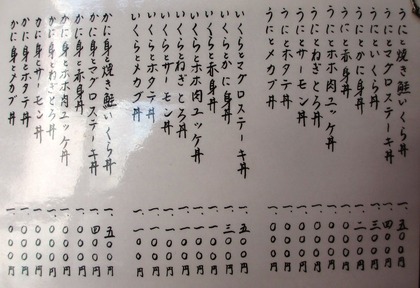 うにと焼き鮭いくら丼 一、五〇〇円
うにとマグロステーキ丼 一、四〇〇円
うにといくら丼 一、三〇〇円
うにとかに身丼 一、二〇〇円
うにと赤身丼 一、〇〇〇円
うにとホホ肉ユッケ丼 一、〇〇〇円
うにとねぎとろ丼 一、〇〇〇円
うにとサーモン丼 一、〇〇〇円
うにとホタテ丼 一、〇〇〇円
うにとメカブ丼 一、〇〇〇円
いくらとマグロステーキ丼 一、五〇〇円
いくらとかに身丼 一、三〇〇円
いくらと赤身丼 一、〇〇〇円
いくらとホホ肉ユッケ丼 一、〇〇〇円
いくらねぎとろ丼 一、〇〇〇円
いくらとサーモン丼 一、〇〇〇円
いくらとホタテ丼 一、〇〇〇円
いくらとメカブ丼 一、〇〇〇円
かに身と焼き鮭いくら丼 一、五〇〇円
かに身とマグロステーキ丼 一、四〇〇円
かに身と赤身丼 一、〇〇〇円
かに身とホホ肉ユッケ丼 一、〇〇〇円
かに身とねぎとろ丼 一、〇〇〇円
かに身とサーモン丼 一、〇〇〇円
かに身とホタテ丼 一、〇〇〇円
かに身とメカブ丼 一、〇〇〇円